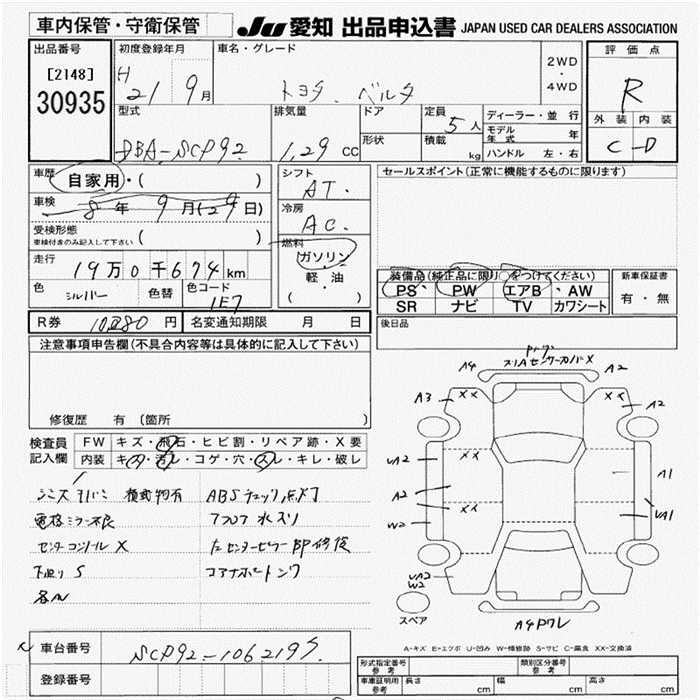 車内保管・守衛保管 JU 愛知 出品申込書 JAPAN USED CAR DEALERS ASSOCIATION
出品番号 初度登録年月 車名・グレード 評価点
[2148] H 21 9月 トヨタ ベルタ 2WD ・ 4WD R
30935
型式 排気量 ドア 定員 ディーラー・並行 外装 内装
5人 モデル年式 年
DBA-SCP92 1.29 cc 形状 積載 kg ハンドル 左・右 C D
車歴 自家用・( ) シフト AT. セールスポイント(正常に機能するものに限ります)
車検 8年 9月(29日) 冷房 AC.
受検形態
車検付きのみ記入して下さい ( ) 燃料
走行 19万0千674km ガソリン 装備品(純正品に限り○をつけてください) 新車保証書
軽・油 PS PW エアB・AW 有・無
色 シルバー 色替 色コード 1E7 ( ) SR ナビ TV カワシート
R券 10,280円 名変通知期限 月 日 後日品
注意事項申告欄(不具合内容等は具体的に記入して下さい)
修復歴 有(箇所 )
A4 A2
A3 XX XX A2
検査員 FW キズ・飛石・ヒビ割・リペア跡・X要
記入欄 内装 キズ・汚レ・コゲ・穴・スレ・キレ・破レ
UA2 XX A1
A2 XX UA1
W2
UA2
W2
積載物有 ABSチェック点灯
電格ミラー不良 フロア水スリ
センターコンソールX 左センターピラー部修復
下廻りS コアサポートシワ
各ル
スペア
A-キズ E-エクボ U-凹み W-補修跡 S-サビ C-腐食 XX-交換済
車台番号 SCP92-1062195
登録番号
形式指定番号 参考 類別区分番号 参考
車庫証明用 参考 長さ cm 幅 cm 高さ cm